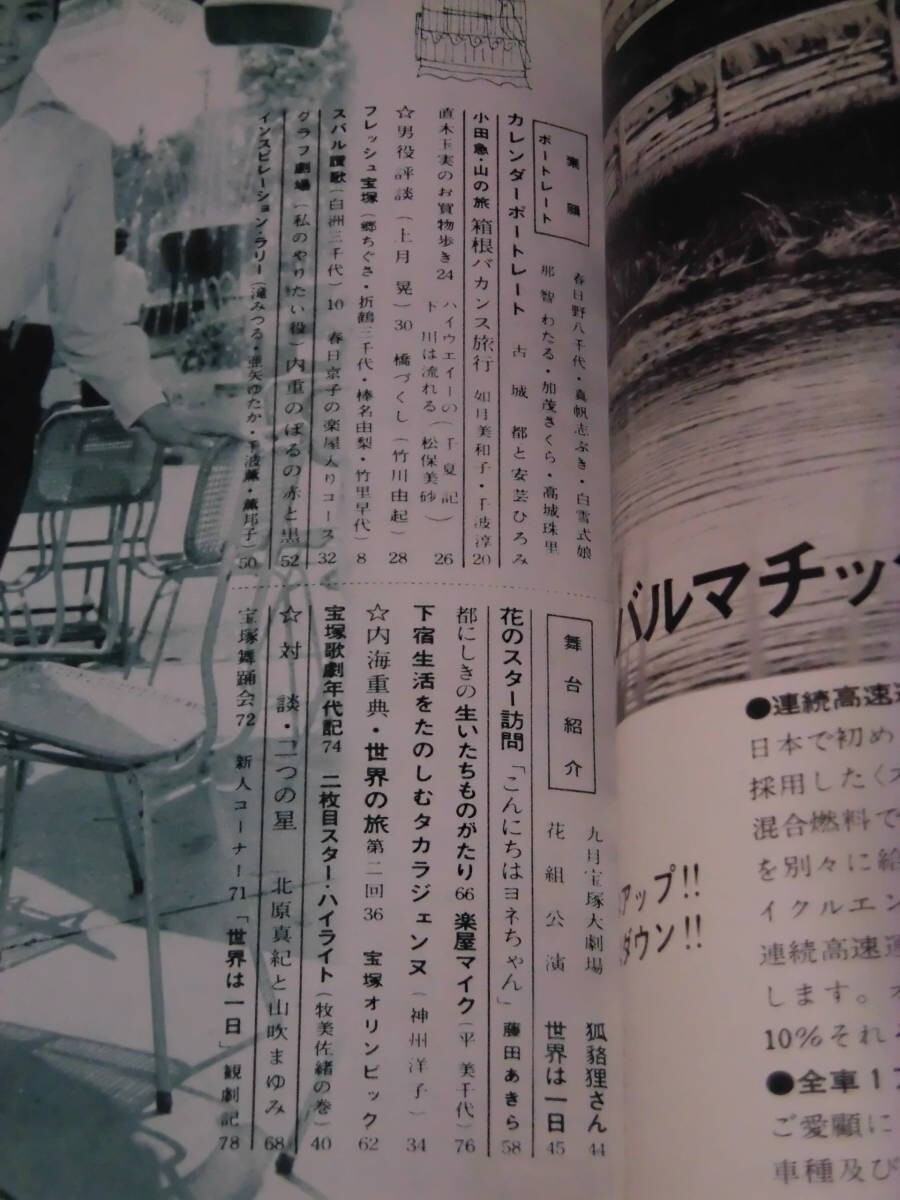 素顔
ポートレート
春日野八千代・真帆志ぶき・白雪式娘
那智わたる・加茂さくら・高城珠里
カレンダーポートレート 古城都と安芸ひろみ
小田急・山の旅 箱根バカンス旅行 如月美和子・千波淳 20
直木玉実のお買物歩き 24 ハイウエイーの(千夏記) 下
川は流れる(松保美砂) 26
☆男役評談(上月晃) 30 橋づくし(竹川由起) 28
フレッシュ宝塚(郷ちぐさ・折鶴三千代・榛名由梨・竹里早代) 8
スバル讃歌(白洲三千代) 10 春日京子の楽屋入りコース 32
グラフ劇場(私のやりたい役)内重のぼるの赤と黒 52
インスピレーション・ラリー(滝みつる・亜矢ゆたか・千波薫・薫邦子) 50
舞台紹介
九月宝塚大劇場
花組公演
狐貉狸さん 44
世界は一日 45
花のスター訪問「こんにちはヨネちゃん」 藤田あきら 58
都にしきの生いたちものがたり 66 楽屋マイク(平美千代) 76
下宿生活をたのしむタカラジェンヌ(神州洋子) 34
☆内海重典・世界の旅 第二回 36 宝塚オリンピック 62
宝塚歌劇年代記 74 二枚目スター・ハイライト(牧美佐緒の巻) 40
☆対談・二つの星 北原真紀と山吹まゆみ 68
宝塚舞踊会 72 新人コーナー 71 「世界は一日」観劇記 78
バルマチッ
アップ!!
ダウン!!
●連続高速運
日本で初め
採用した〈ス
混合燃料で
を別々に給
イクルエン
連続高速運
します。オ
10%それそ
●全車1
ご愛顧に
車種及び